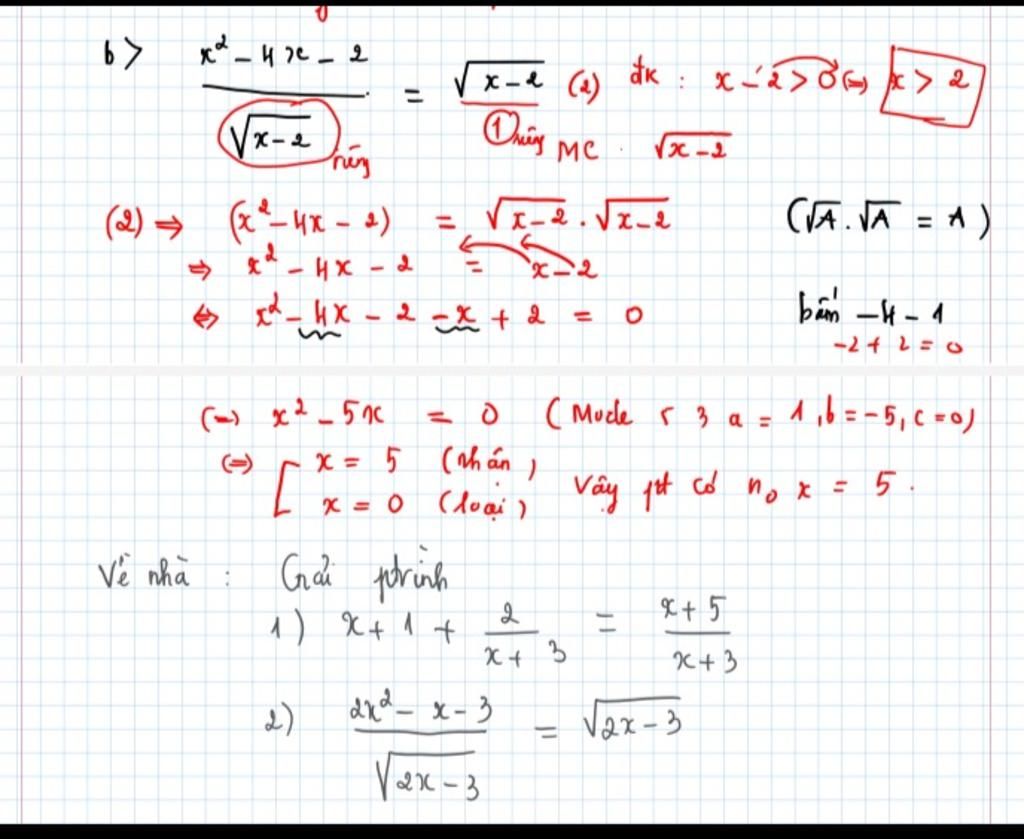 b> (x² - 4x - 2)/√(x-2) = √(x-2) (2) đk : x - 2 > 0 (=) x > 2
riêng 1 riêng MC . √(x-2)
(2) ⇒ (x² - 4x - 2) = √(x-2) . √(x-2) (√A . √A = A)
⇒ x² - 4x - 2 = x - 2
⇔ x² - 4x - 2 - x + 2 = 0 bấm -4 - 1
-2 + 2 = 0
(=) x² - 5x = 0 (Mode 5 3 a = 1, b = -5, c = 0)
(=) [ x = 5 (nhận)
x = 0 (loại) Vậy pt có n₀ x = 5 .
Về nhà : Giải ptrình
1) x + 1 + 2/(x + 3) = (x + 5)/(x + 3)
2) (2x² - x - 3)/√(2x - 3) = √(2x - 3)